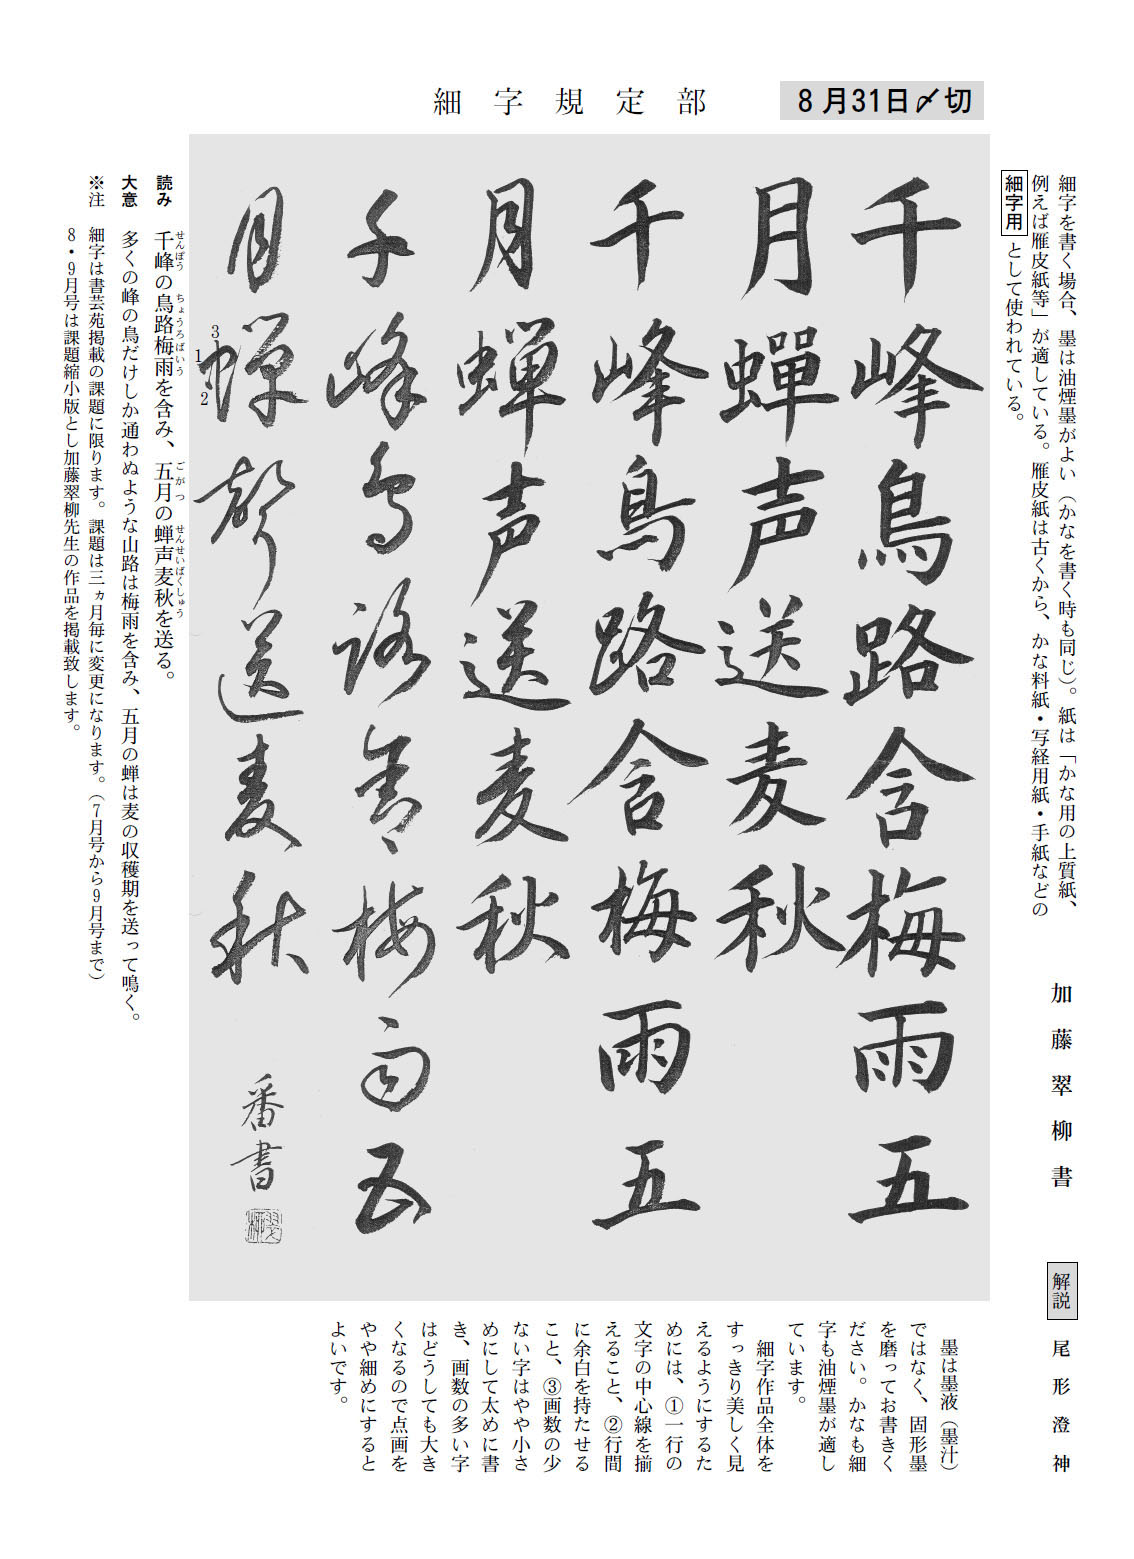 細字規定部
8月31日〆切
細字を書く場合、墨は油煙墨がよい（かなを書く時も同じ）。紙は「かな用の上質紙、
例えば雁皮紙等」が適している。雁皮紙は古くから、かな料紙・写経用紙・手紙などの
細字用として使われている。
加藤翠柳書
千峰鳥路含梅雨五
月蟬声送麦秋
千峰鳥路含梅雨五
月蝉声送麦秋
千峰鳥路含梅雨五
月蝉聲送麦秋
3
1
2
番書
読み 千峰の鳥路梅雨を含み、五月の蝉声麦秋を送る。
せんぽう ちょうろばいう ごがつ せんせいばくしゅう
大意 多くの峰の鳥だけしか通わぬような山路は梅雨を含み、五月の蝉は麦の収穫期を送って鳴く。
※注 細字は書芸苑掲載の課題に限ります。課題は三ヵ月毎に変更になります。（7月号から9月号まで）
8・9月号は課題縮小版とし加藤翠柳先生の作品を掲載致します。
解説 尾形澄神
墨は墨液（墨汁）
ではなく、固形墨
を磨ってお書きく
ださい。かなも細
字も油煙墨が適し
ています。
細字作品全体を
すっきり美しく見
えるようにするた
めには、①一行の
文字の中心線を揃
えること、②行間
に余白を持たせる
こと、③画数の少
ない字はやや小さ
めにして太めに書
き、画数の多い字
はどうしても大き
くなるので点画を
やや細めにすると
よいです。